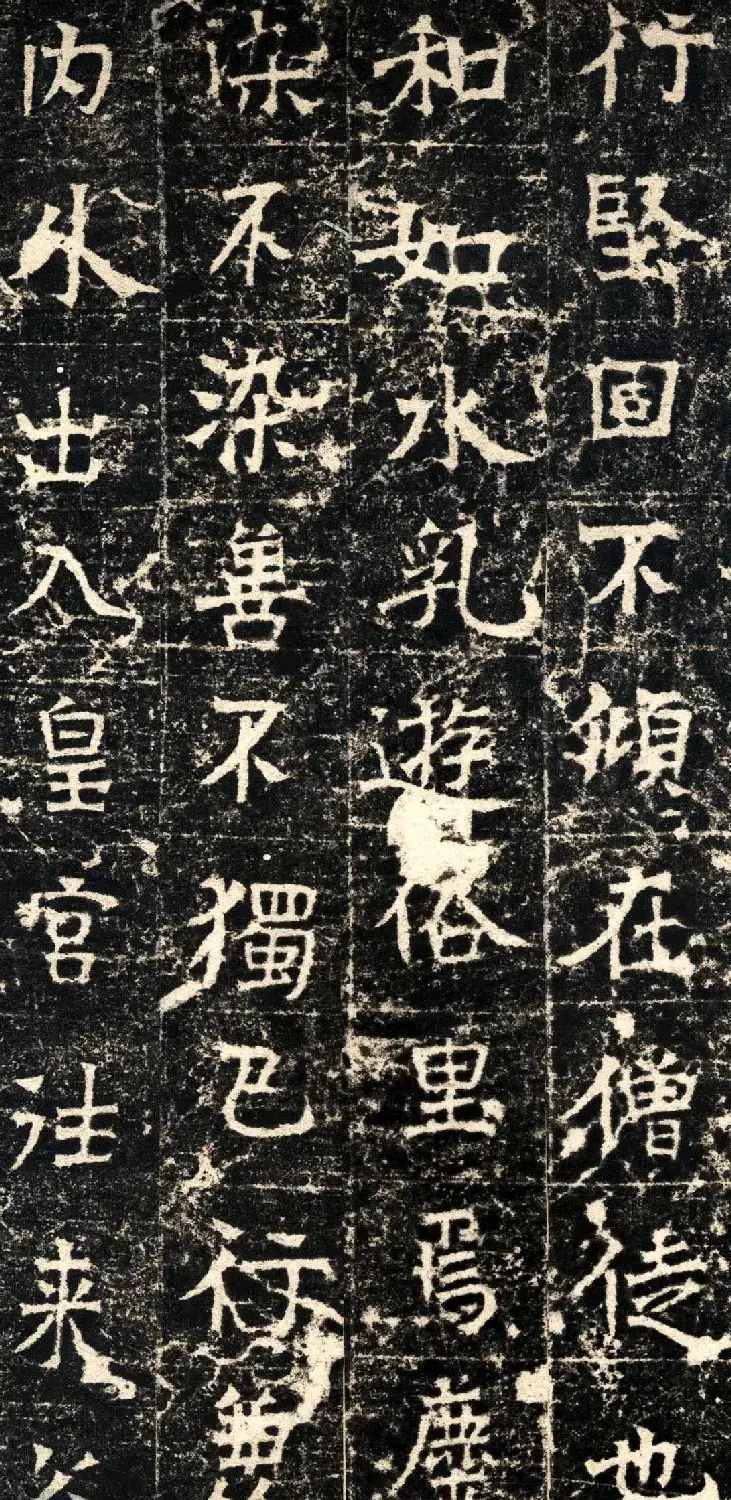 行堅固不傾在僧徒也
和如水乳遊俗里焉
不染善不獨巳行兼
内外出入皇宫往来